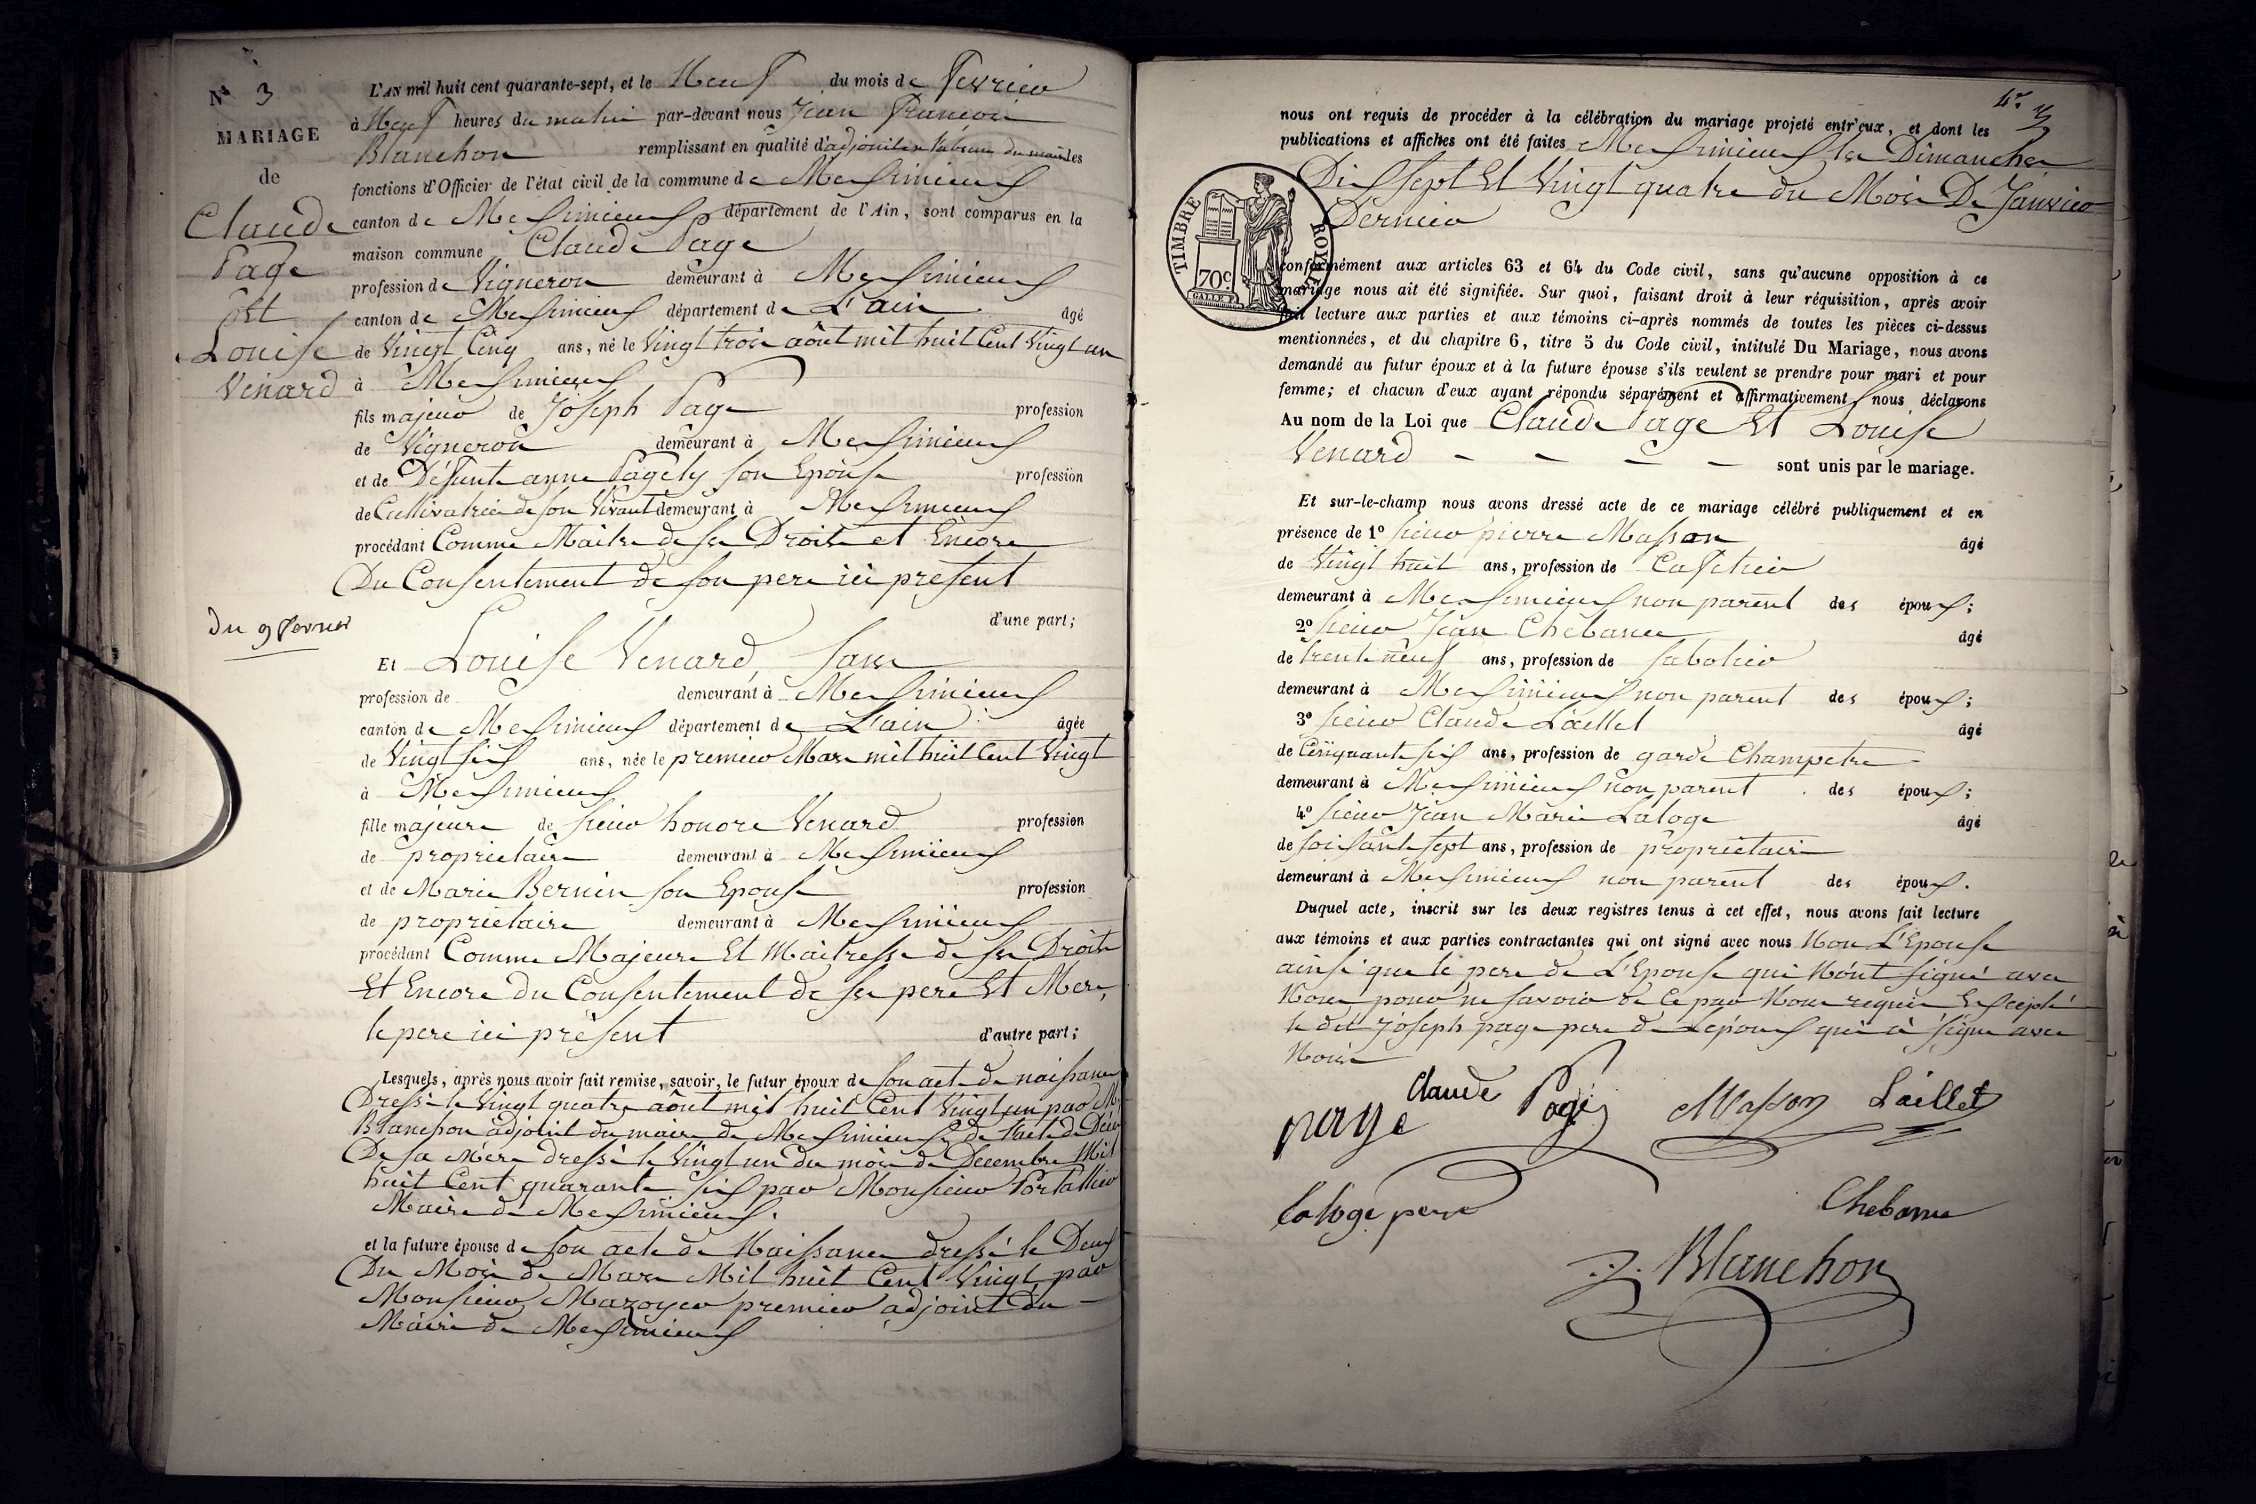 N° 3
MARIAGE
de
Claude
Page
Et
Louise
Venard
du 9 fevrier
L'AN mil huit cent quarante-sept, et le Neuf du mois de Fevrier
à Neuf heures du matin par-devant nous Jean François
Blanchon remplissant en qualité d'adjoint en l'absence du maire les
fonctions d'Officier de l'état civil de la commune de Messimieux
canton de Messimieux département de l'Ain, sont comparus en la
maison commune Claude Page
profession de Vigneron demeurant à Messimieux
canton de Messimieux département de L'ain âgé
de Vingt Cinq ans, né le Vingt trois aôut mil huit Cent Vingt un
à Messimieux
fils majeur de Joseph Page profession
de Vigneron demeurant à Messimieux
et de Défunte anne Pagely son Epouse profession
de Cultivatrice de son Vivant demeurant à Messimieux
procédant Comme Maitre de ses Droits et Encore
Du Consentement de son pere ici présent
d'une part;
Et Louise Venard, sans
profession de demeurant à Messimieux
canton de Messimieux département de L'ain âgée
de Vingt six ans, née le premier Mars mil huit Cent Vingt
à Messimieux
fille majeure de sieur honore Venard profession
de propriétaire demeurant à Messimieux
et de Marie Bernin son Epouse profession
de propriétaire demeurant à Messimieux
procédant Comme Majeure Et Maitresse de ses Droits
Et Encore du Consentement de ses pere Et Mere,
le pere ici présent d'autre part;
Lesquels, après nous avoir fait remise, savoir, le futur époux de son acte de naissance
Dressé le Vingt quatre aôut mil huit Cent Vingt un par M.
Blanchon adjoint du maire de Messimieux, de l'acte de Décès
De sa Mère dressé le Vingt un du mois de Decembre Mil
huit Cent quarante six par Monsieur Portallier
Maire de Messimieux.
et la future épouse de son acte de Naissance dressé le Deux
Du Mois de Mars Mil huit Cent Vingt par
Monsieur Mazoyer premier adjoint du
Maire de Messimieux
nous ont requis de procéder à la célébration du mariage projeté entr'eux, et dont les
publications et affiches ont été faites Messimieux les Dimanches
Dix sept Et Vingt quatre du Mois De Janvier
Dernier
TIMBRE ROYAL
70c
conformément aux articles 63 et 64 du Code civil, sans qu'aucune opposition à ce
mariage nous ait été signifiée. Sur quoi, faisant droit à leur réquisition, après avoir
fait lecture aux parties et aux témoins ci-après nommés de toutes les pièces ci-dessus
mentionnées, et du chapitre 6, titre 5 du Code civil, intitulé Du Mariage, nous avons
demandé au futur époux et à la future épouse s'ils veulent se prendre pour mari et pour
femme; et chacun d'eux ayant répondu séparément et affirmativement, nous déclarons
Au nom de la Loi que Claude Page Et Louise
Venard - - - - sont unis par le mariage.
Et sur-le-champ nous avons dressé acte de ce mariage célébré publiquement et en
présence de 1° sieur pierre Masson âgé
de Vingt huit ans, profession de Cafetier
demeurant à Messimieux non parent des époux;
2° sieur Jean Chebance âgé
de trente neuf ans, profession de sabotier
demeurant à Messimieux non parent des époux;
3° sieur Claude Laillet âgé
de Cinquante six ans, profession de garde Champetre
demeurant à Messimieux non parent des époux;
4° sieur Jean Marie Laloge âgé
de soixante sept ans, profession de propriétaire
demeurant à Messimieux non parent des époux.
Duquel acte, inscrit sur les deux registres tenus à cet effet, nous avons fait lecture
aux témoins et aux parties contractantes qui ont signé avec nous Non L'Epouse
ainsi que le pere de L'Epouse qui N'ont signé avec
Nous pour ne savoir de Ce par Nous requis Excepté
le dit Joseph page pere de L'epoux qui à signe avec
Nous
Claude Page
page
Masson
Laillet
laloge pere
Chebance
J. Blanchon